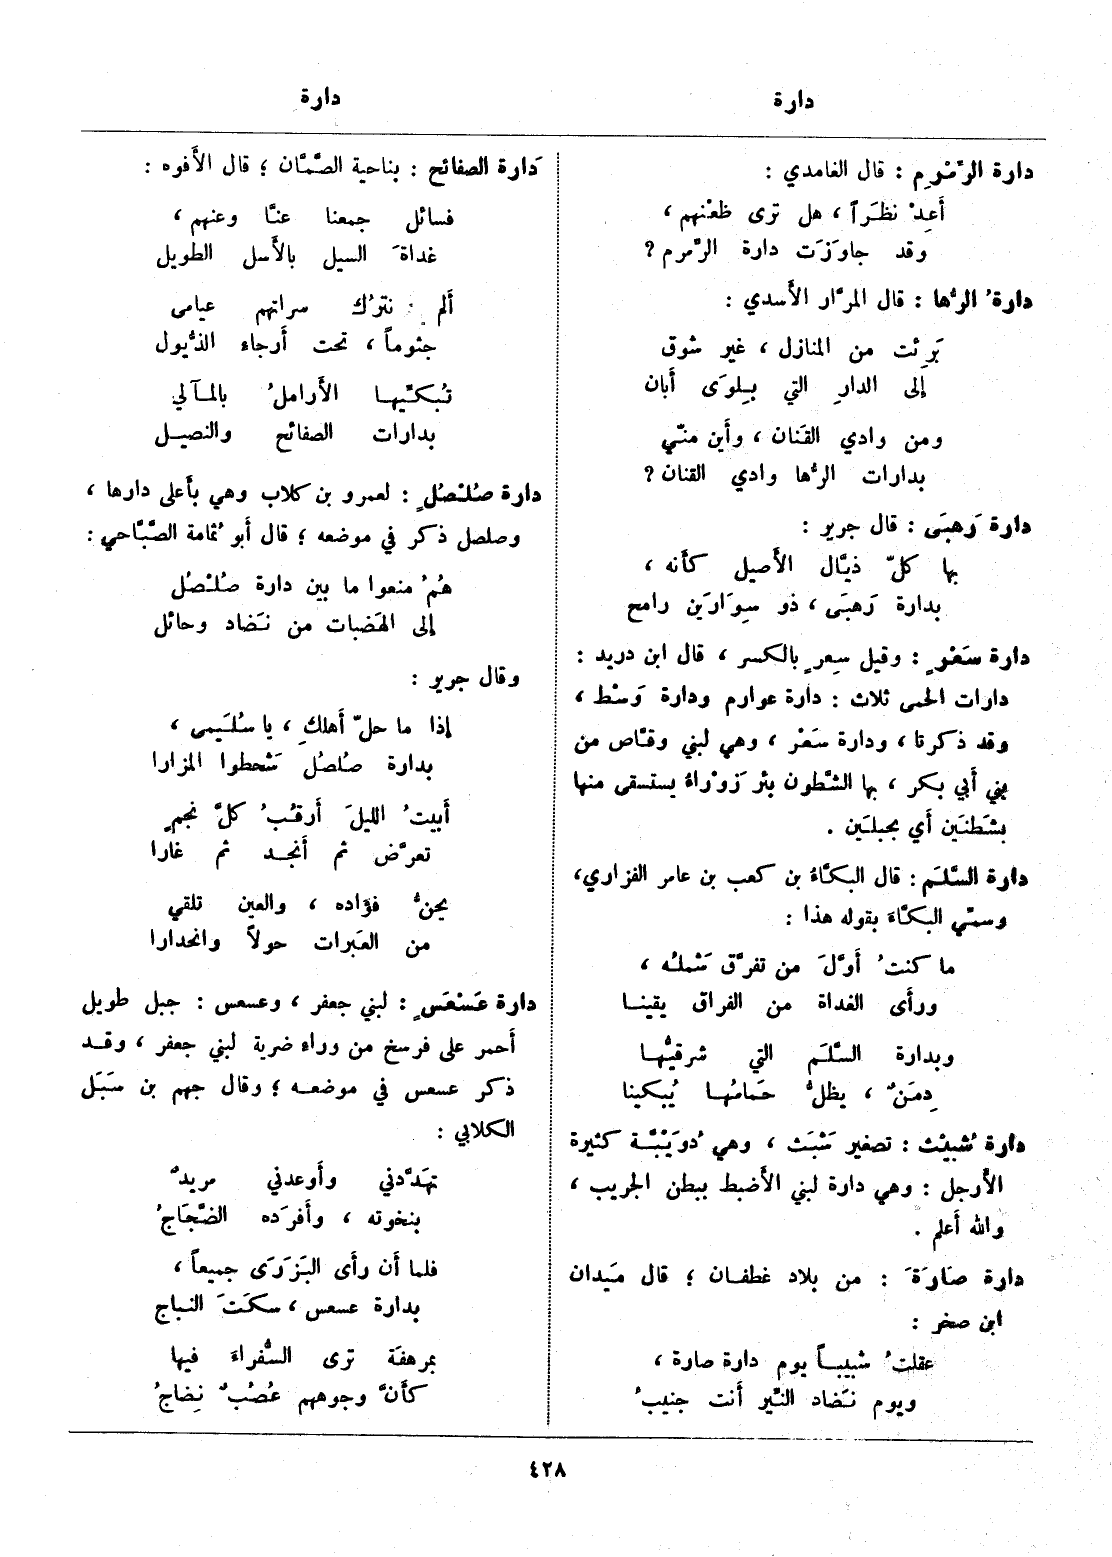 دارة
دارة
دارة الرِّمْرِم : قال الغامدي :
أَعِدْ نظَراً ، هل ترى ظعْنهم ،
وقد جاوَزَت دارة الرِّمرم ؟
دارةُ الرُّها : قال المرَّار الأَسدي :
بَرِئت من المنازل ، غير شوق
إلى الدارِ التي بِلِوَى أَبان
ومن وادي القَنان ، وأَين منّي
بدارات الرُّها وادي القنان ؟
دارة رَهبَى : قال جرير :
بها كلّ ذيَّال الأَصيل كأنه ،
بدارة رَهبَى ، ذو سِوارَين رامح
دارة سَعْرٍ : وقيل سِعرٍ بالكسر ، قال ابن دريد :
دارات الحمى ثلاث : دارة عوارم ودارة وَسْط ،
وقد ذكرتا ، ودارة سَعْر ، وهي لبني وقَّاص من
بني أبي بكر ، بها الشَّطون بئر زَوْراءُ يستسقى منها
بشَطَنَين أي بحبلَين .
دارة السَّلَم : قال البكَّاءُ بن كعب بن عامر الفزاري ،
وسمّي البكَّاءَ بقوله هذا :
ما كنتُ أَوَّلَ من تفرَّق شَملُه ،
ورأى الغداة من الفراق يقينا
وبدارة السَّلَم التي شرقيُّها
دِمَنٌ ، يظلُّ حَمامُها يُبكينا
دارة شُبيْث : تصغير شَبَث ، وهي دُوَيْبَّة كثيرة
الأَرجل : وهي دارة لبني الأَضبط ببطن الجريب ،
والله أَعلم .
دارة صَارَةَ : من بلاد غطفان ؛ قال مَيدان
ابن صخر :
عقلتُ شبيباً يوم دارة صارة ،
ويوم نَضاد النِّير أنت جنيبُ
دَارة الصفائح : بناحية الصَّمَّان ؛ قال الأَفوه :
فسائل جمعنا عنَّا وعنهم ،
غداةَ السيل بالأَسل الطويل
أَلم نترُك سراتهم عيامى
جثوماً ، تحت أَرجاء الذُّيول
تُبكّيها الأَراملُ بالمآلي
بدارات الصفائح والنصيل
دارة صُلْصُلٍ : لعمرو بن كلاب وهي بأَعلى دارها ،
وصلصل ذكر في موضعه ؛ قال أبو ثُمامة الصَّبَّاحي :
هُمُ منعوا ما بين دارة صُلْصُل
إلى الهَضَبات من نَضاد وحائل
وقال جرير :
إذا ما حلّ أَهلكِ ، يا سُلَيمى ،
بدارة صُلصُل شَحطوا المزارا
أَبيتُ الليلَ أَرقُبُ كلَّ نجمٍ
تعرَّض ثم أَنجد ثم غارا
يحنُّ فؤاده ، والعين تلقي
من العَبرات حولاً وانحدارا
دارة عَسْعَسٍ : لبني جعفر ، وعسعس : جبل طويل
أَحمر على فرسخ من وراء ضرية لبني جعفر ، وقد
ذكر عسعس في موضعه ؛ وقال جهم بن سَبَل
الكلابي :
تهَدَّدني وأَوعدني مريدٌ
بنخوته ، وأَفرَده الضَّجَاجُ
فلما أَن رأَى البَزَرَى جميعاً ،
بدارة عسعس ، سكتَ النباج
بمرهفة ترى السُّفراءَ فيها
كأَنَّ وجوههم عُصُبٌ نِضاجُ
٤٢٨